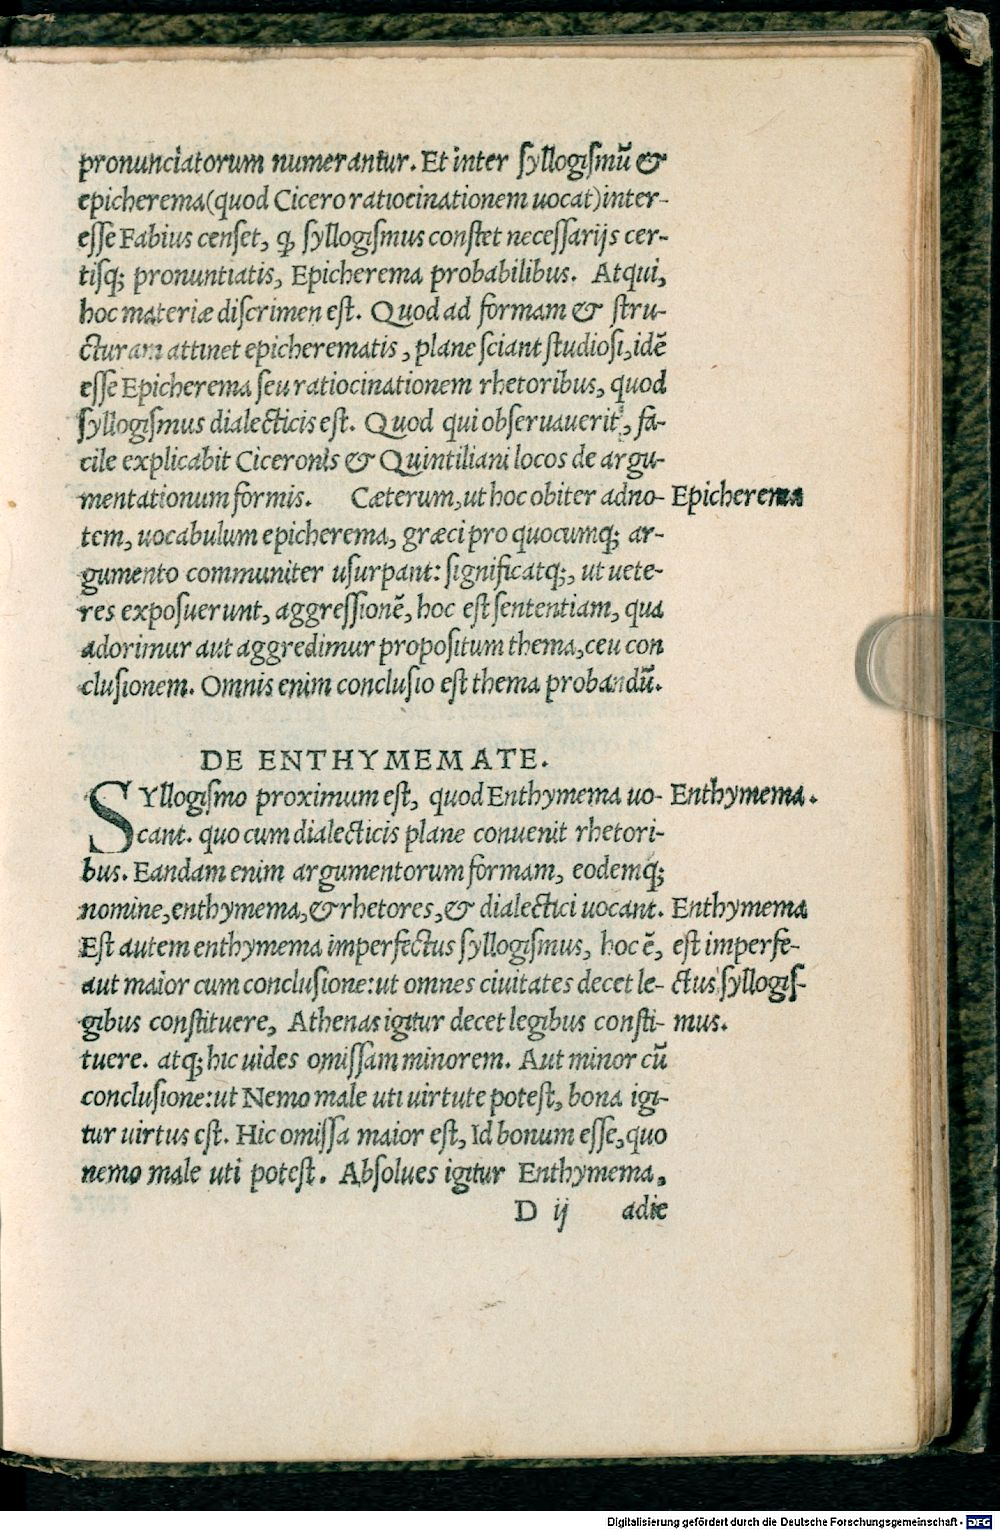 pronunciatorum numerantur. Et inter syllogismū &
epicherema (quod Cicero ratiocinationem uocat) inter-
esse Fabius censet, ꝙ syllogismus constet necessarijs cer-
tisq; pronuntiatis, Epicherema probabilibus. Atqui,
hoc materiæ discrimen est. Quod ad formam & stru-
cturam attinet epicherematis, plane sciant studiosi, idē
esse Epicherema seu ratiocinationem rhetoribus, quod
syllogismus dialecticis est. Quod qui obseruauerit, fa-
cile explicabit Ciceronis & Quintiliani locos de argu-
mentationum formis. Cæterum, ut hoc obiter adno-
Epicherema
tem, uocabulum epicherema, græci pro quocumq; ar-
gumento communiter usurpant: significatq;, ut uete-
res exposuerunt, aggressionē, hoc est sententiam, qua
adorimur aut aggredimur propositum thema, ceu con
clusionem. Omnis enim conclusio est thema probandū.
DE ENTHYMEMATE.
SYllogismo proximum est, quod Enthymema uo-
Enthymema.
cant. quo cum dialecticis plane conuenit rhetori-
bus. Eandam enim argumentorum formam, eodemq;
nomine, enthymema, & rhetores, & dialectici uocant.
Enthymema
Est autem enthymema imperfectus syllogismus, hoc ē,
est imperfe-
aut maior cum conclusione: ut omnes ciuitates decet le-
ctus syllogis-
gibus constituere, Athenas igitur decet legibus consti-
mus.
tuere. atq; hic uides omissam minorem. Aut minor cū
conclusione: ut Nemo male uti uirtute potest, bona igi-
tur uirtus est. Hic omissa maior est, Id bonum esse, quo
nemo male uti potest. Absolues igitur Enthymema,
D ij adie
Digitalisierung gefördert durch die Deutsche Forschungsgemeinschaft - DFG